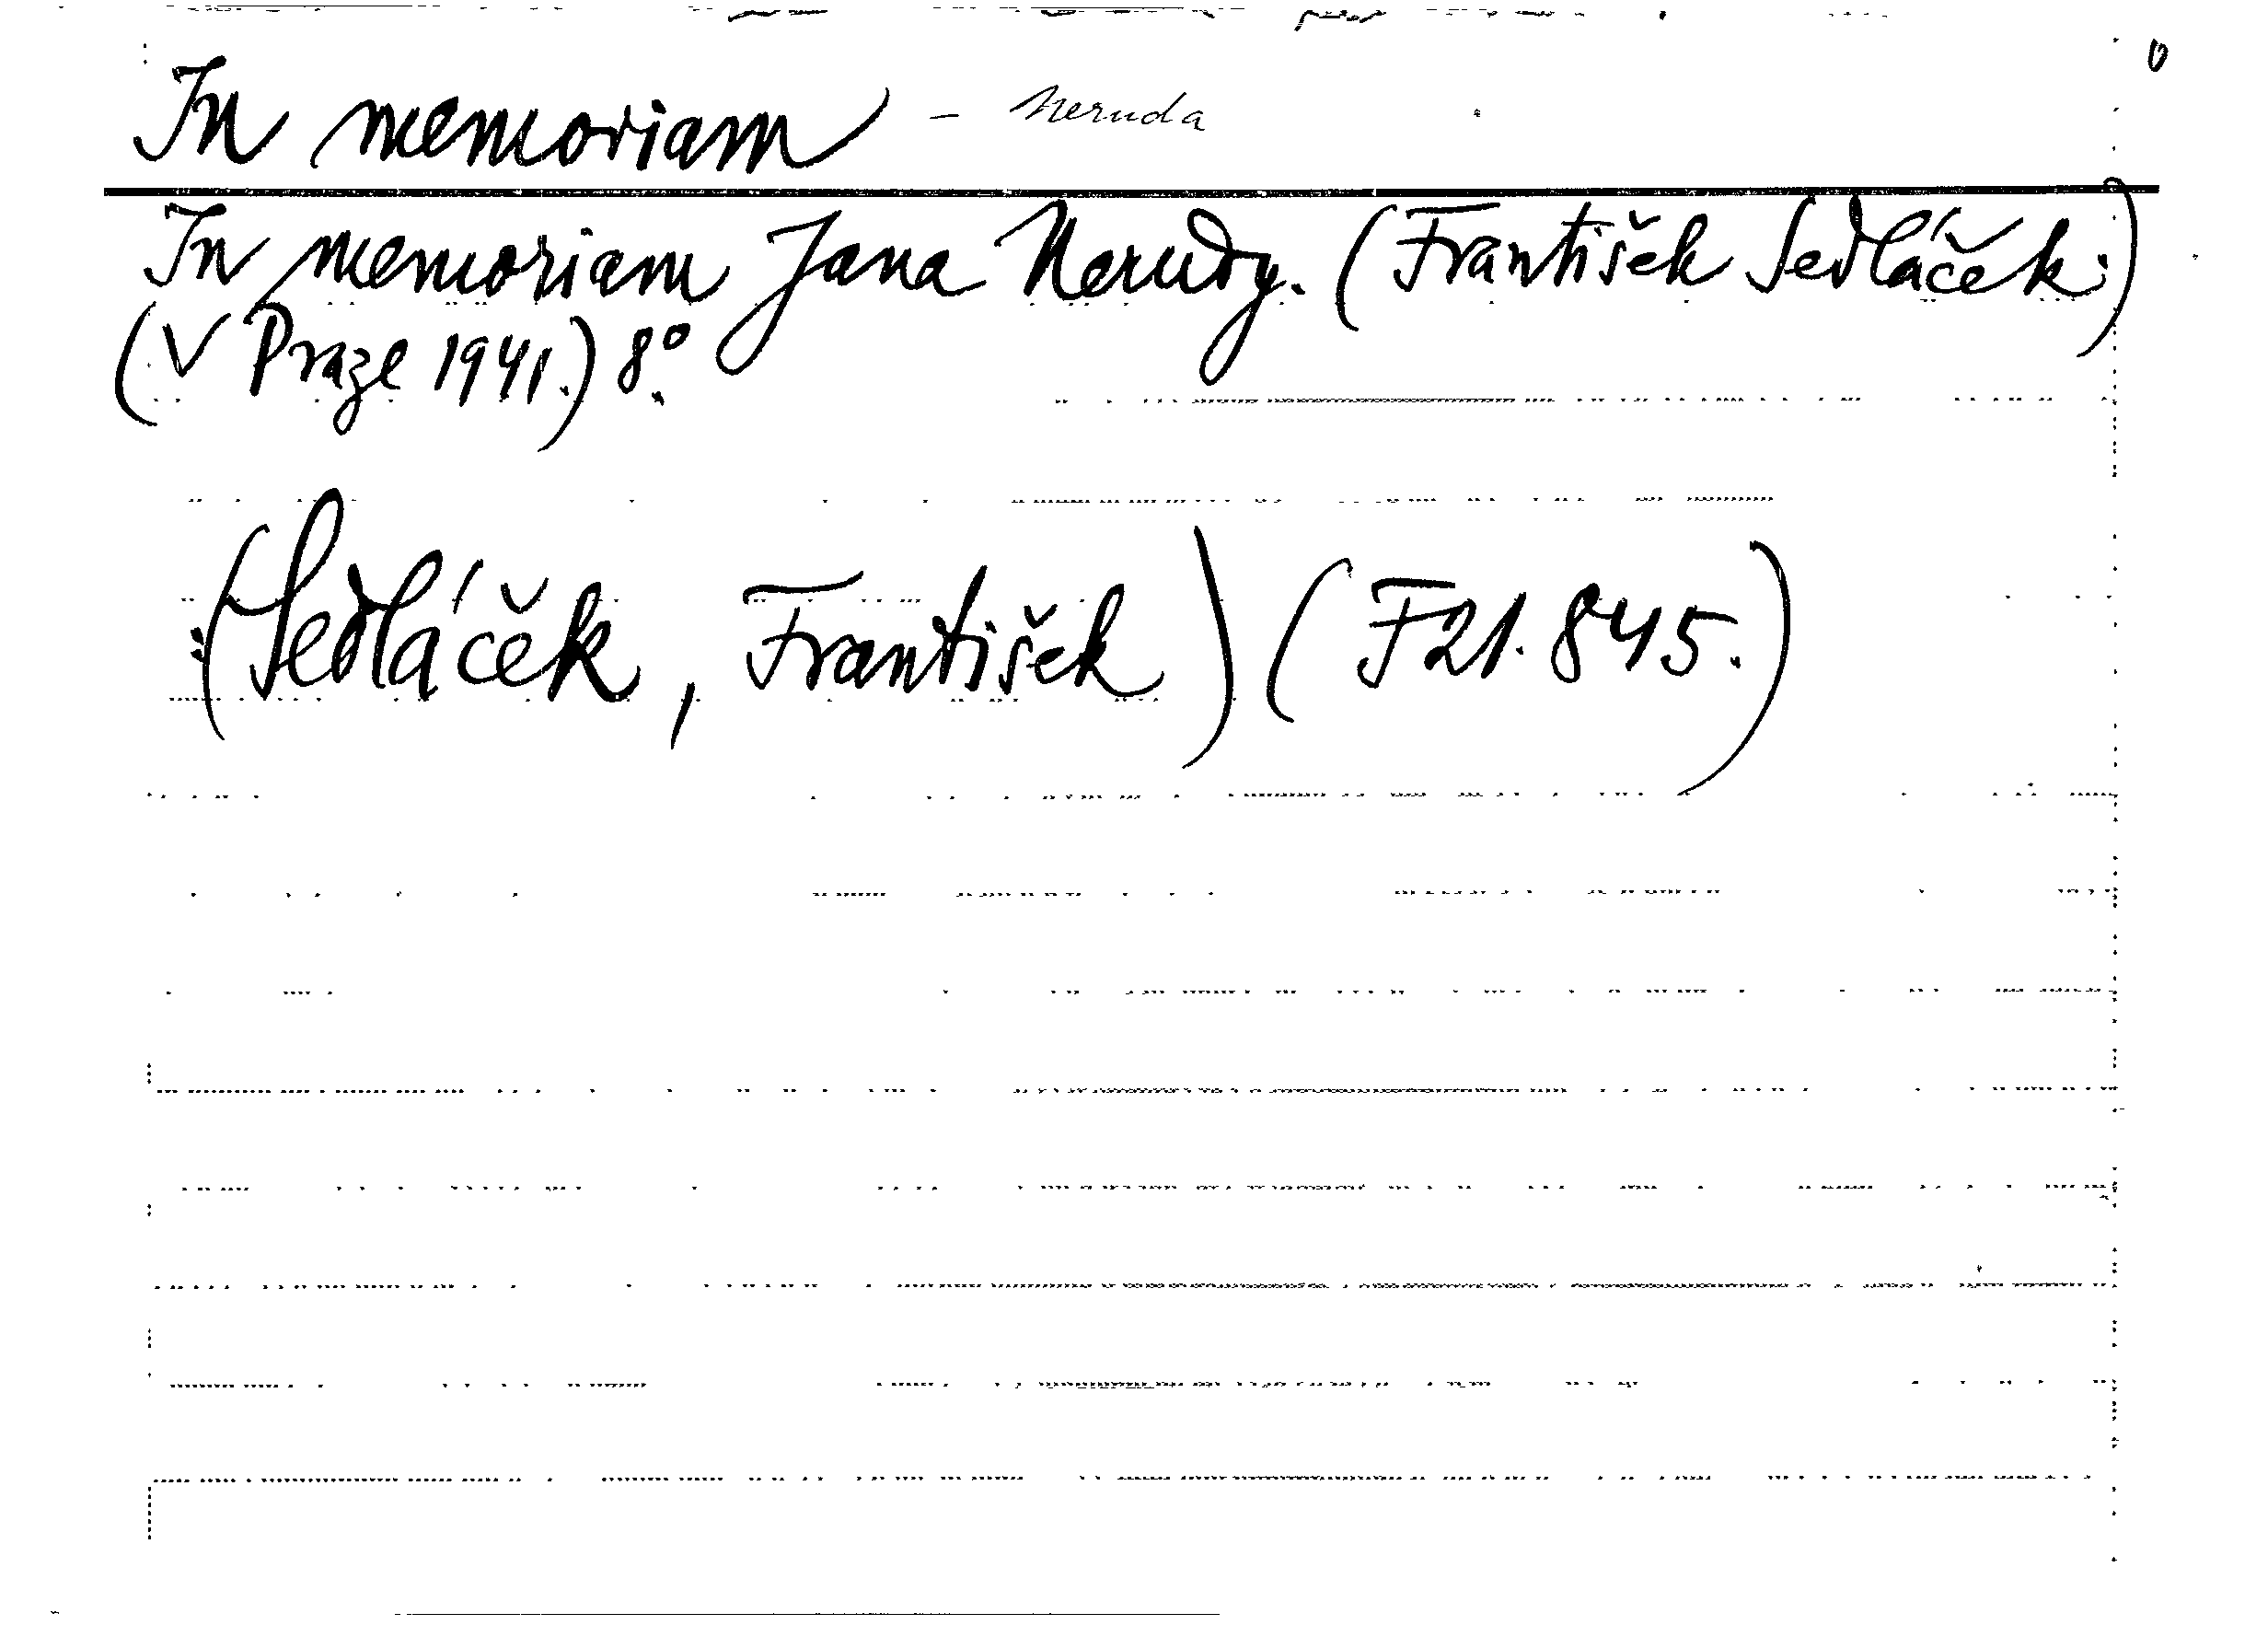 In memoriam - Neruda
In memoriam Jana Nerudy. (František Sedláček.)
(V Praze 1941.) 8°.
(Sedláček, František) (F21.845.)